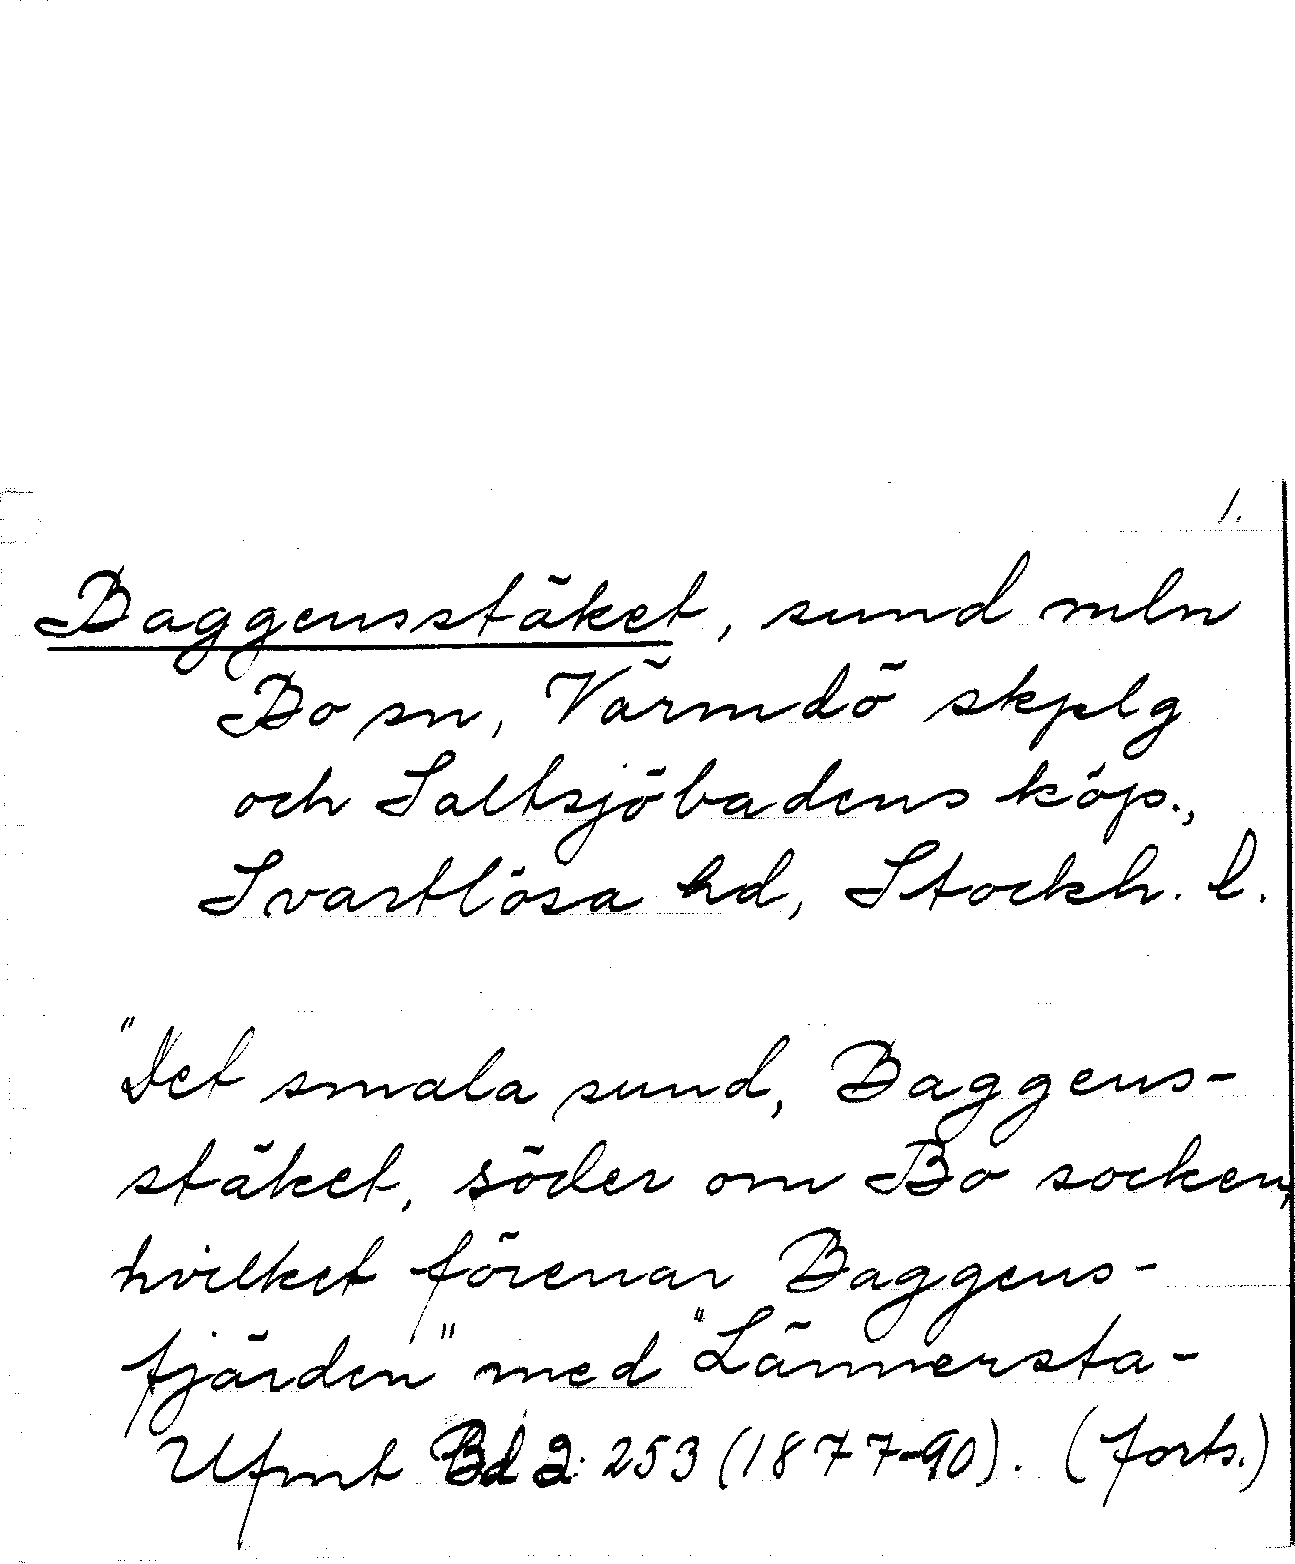 1.
Baggensstäket, sund mln
Bo sn, Värmdö skplg
och Saltsjöbadens köp.,
Svartlösa hd, Stockh. l.
"Det smala sund, Baggens-
stäket, söder om Bo socken,
hvilket förenar Baggens-
fjärden" med "Lännersta-
Ufmt Bd 2: 253 (1877-90). (forts.)